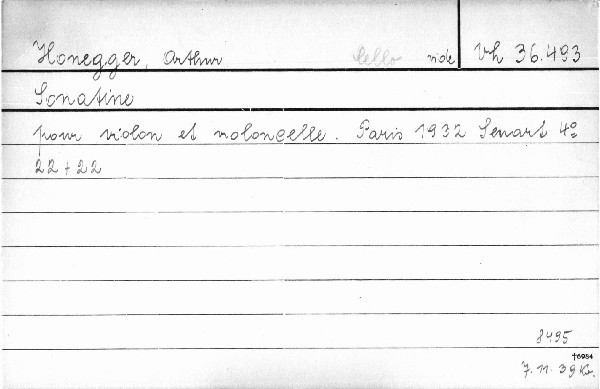 Honegger, Arthur Cello vide Vh 36.493
Sonatine
pour violon et violoncelle. Paris 1932 Senart 4º
22 + 22
8495
†6984
7. 11. 39 Kr.